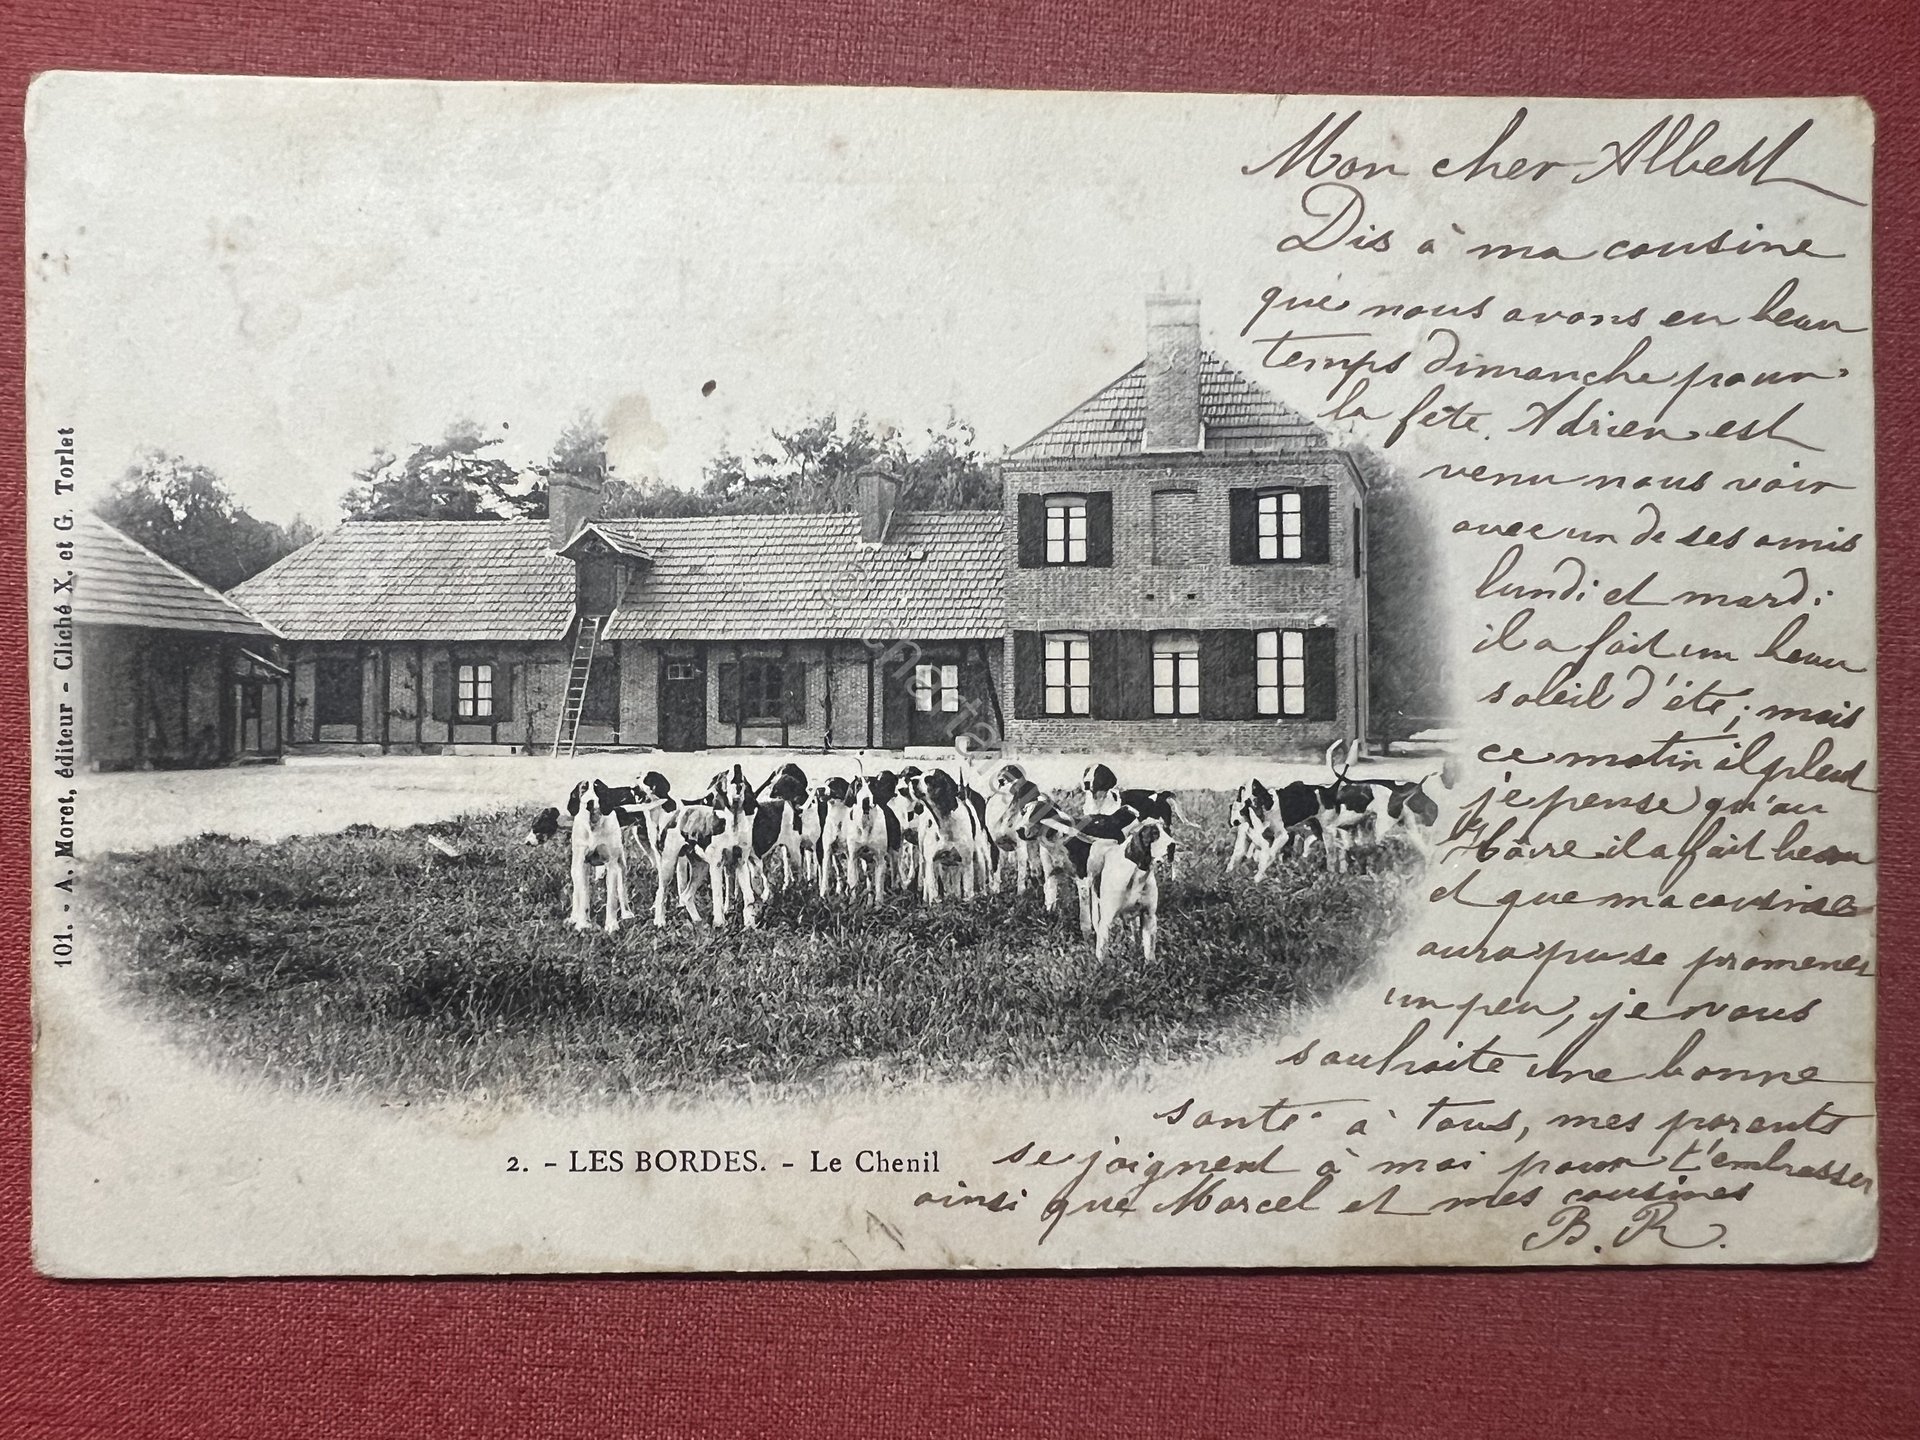 Mon cher Albert
Dis à ma cousine
que nous avons eu beau
temps dimanche pour
la fête. Adrien est
venu nous voir
avec un de ses amis
lundi et mardi
il a fait un beau
soleil d'été; mais
ce matin il pleut
je pense qu'au
Hâvre il a fait beau
et que ma cousine
aura pu se promener
un peu, je vous
souhaite une bonne
santé à tous, mes parents
se joignent à moi pour t'embrasser
ainsi que Marcel et mes cousines
B. R.
2. - LES BORDES. - Le Chenil
101. - A. Moret, éditeur - Cliché X. et G. Torlet